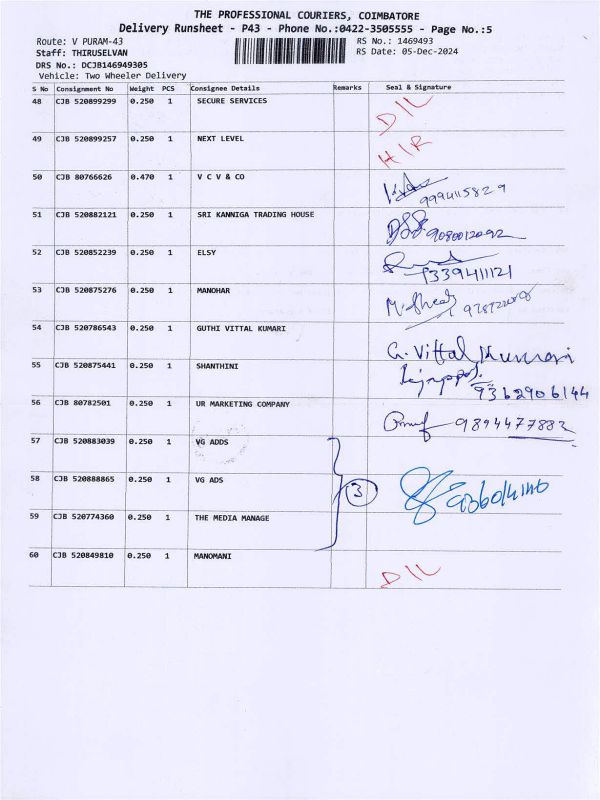 THE PROFESSIONAL COURIERS, COIMBATORE
Delivery Runsheet - P43 - Phone No.:0422-3505555 - Page No.:5
Route: V PURAM-43 RS No.: 1469493
Staff: THIRUSELVAN RS Date: 05-Dec-2024
DRS No.: DCJB146949305
Vehicle: Two Wheeler Delivery
S No Consignment No Weight PCS Consignee Details Remarks Seal & Signature
48 CJB 520899299 0.250 1 SECURE SERVICES D/L
49 CJB 520899257 0.250 1 NEXT LEVEL H/R
50 CJB 80766626 0.470 1 V C V & CO 9994115829
51 CJB 520882121 0.250 1 SRI KANNIGA TRADING HOUSE 9080012092
52 CJB 520852239 0.250 1 ELSY
53 CJB 520875276 0.250 1 MANOHAR
54 CJB 520786543 0.250 1 GUTHI VITTAL KUMARI G. Vittal Kumari
55 CJB 520875441 0.250 1 SHANTHINI 9362906144
56 CJB 80782501 0.250 1 UR MARKETING COMPANY 9894477882
57 CJB 520883039 0.250 1 VG ADDS
58 CJB 520888865 0.250 1 VG ADS 3
59 CJB 520774360 0.250 1 THE MEDIA MANAGE
60 CJB 520849810 0.250 1 MANOMANI D/L